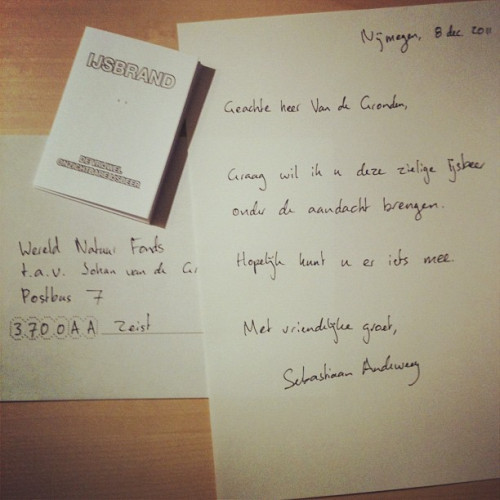 IJSBRAND
DE VRIJWEL
ONZICHTBARE IJSBEER
Wereld Natuur Fonds
t.a.v. Johan van de Gr
Postbus 7
3700AA Zeist
Nijmegen, 8 dec. 2011
Geachte heer Van de Gronden,
Graag wil ik u deze zielige Ijsbeer
onder de aandacht brengen.
Hopelijk kunt u er iets mee.
Met vriendelijke groet,
Sebastiaan Andeweg